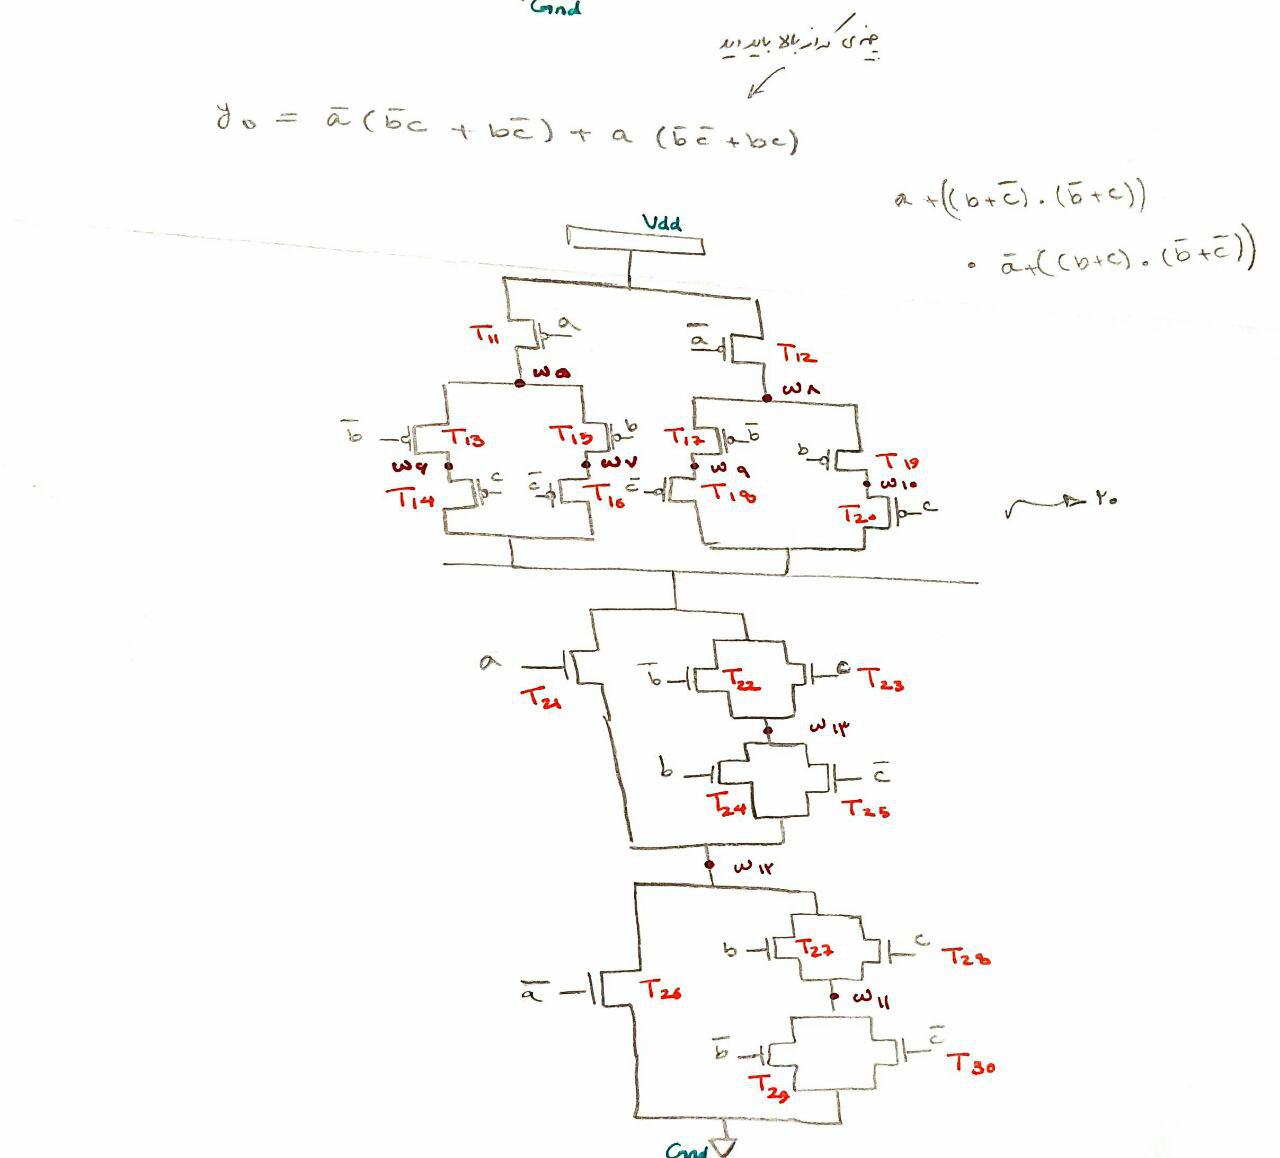 Gnd
چیزی که از بالا باید دید
y₀ = a̅ (b̅c + bc̅) + a (b̅c̅ + bc)
a + ((b+c̅) . (b̅+c))
. a̅ + ((b+c) . (b̅+c̅))
Vdd
T11 a a̅ T12
w۵ w۸
b̅ T13 T15 b T17 b̅ b T19
w۶ w۷ w۹ w۱۰
T14 c c̅ T16 c̅ T18 T20 c
y₀
a T21 b̅ T22 c T23
w۱۳
b T24 c̅ T25
w۱۲
b T27 c T28
a̅ T26
w۱۱
b̅ T29 c̅ T30
Gnd